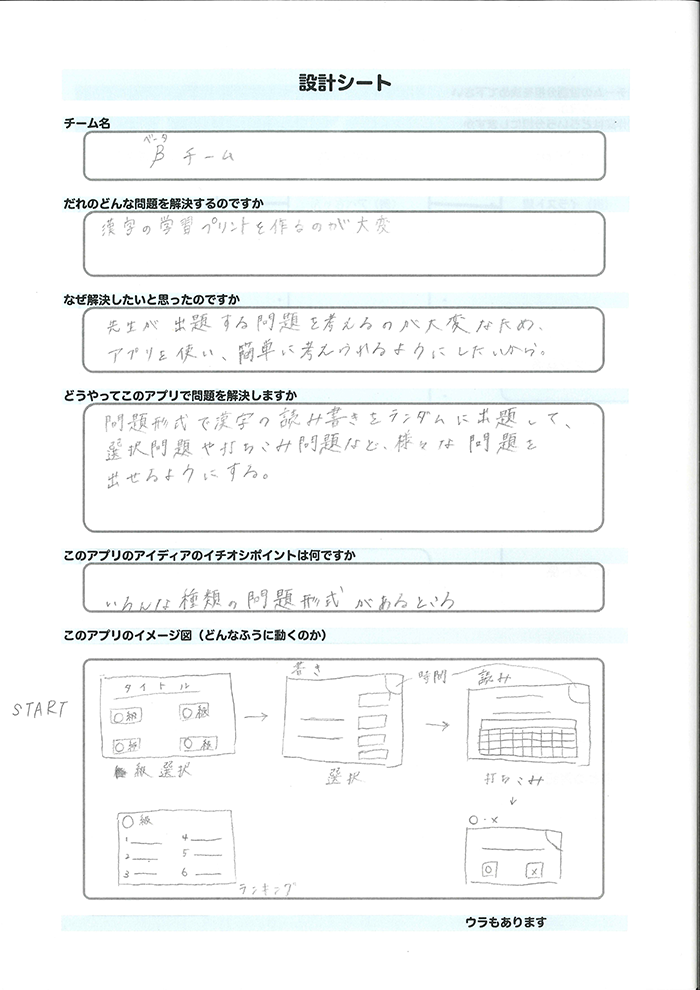 設計シート
チーム名
ベータ
βチーム
だれのどんな問題を解決するのですか
漢字の学習プリントを作るのが大変
なぜ解決したいと思ったのですか
先生が出題する問題を考えるのが大変なため、
アプリを使い、簡単に考えられるようにしたいから。
どうやってこのアプリで問題を解決しますか
問題形式で漢字の読み書きをランダムに出題して、
選択問題や打ちこみ問題など、様々な問題を
出せるようにする。
このアプリのアイディアのイチオシポイントは何ですか
いろんな種類の問題形式があるところ
このアプリのイメージ図（どんなふうに動くのか）
START
タイトル
〇級 〇級
〇級 〇級
級選択
→
書き
選択
時間
→
読み
打ちこみ
↓
〇・×
〇 ×
〇級
1 4
2 5
3 6
ランキング
ウラもあります